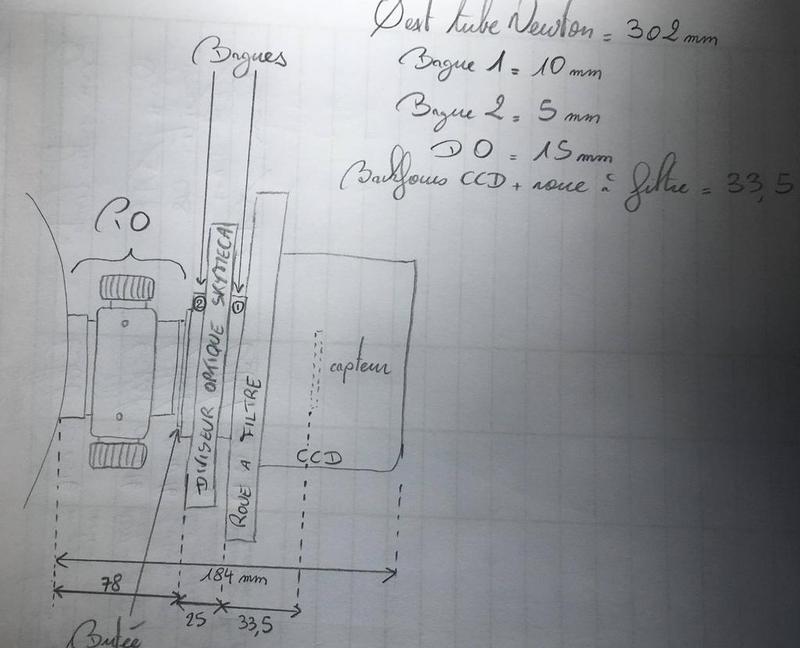 Øext tube Newton = 302 mm
Bague 1 = 10 mm
Bague 2 = 5 mm
DO = 15 mm
Backfocus CCD + roue à filtre = 33,5
Bagues
P.O
②
①
DIVISEUR OPTIQUE SKYMECA
ROUE A FILTRE
capteur
CCD
184 mm
78
25
33,5
Butée